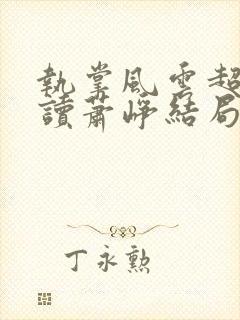 執掌風雲超
讀蕭崢結局
丁永勲